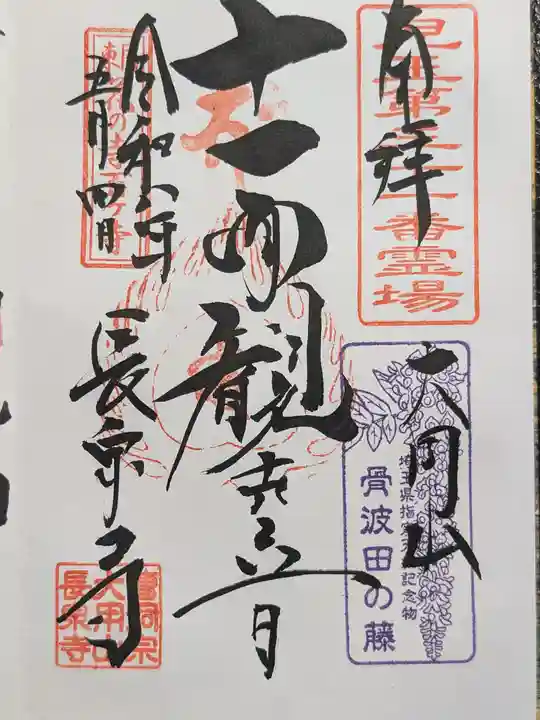 奉拝
児玉第三十二番霊場
大用山
埼玉県指定天然記念物
骨波田の藤
十一面観世音
令和六年
五月四日
長泉寺
曹洞宗
大用山
長泉寺